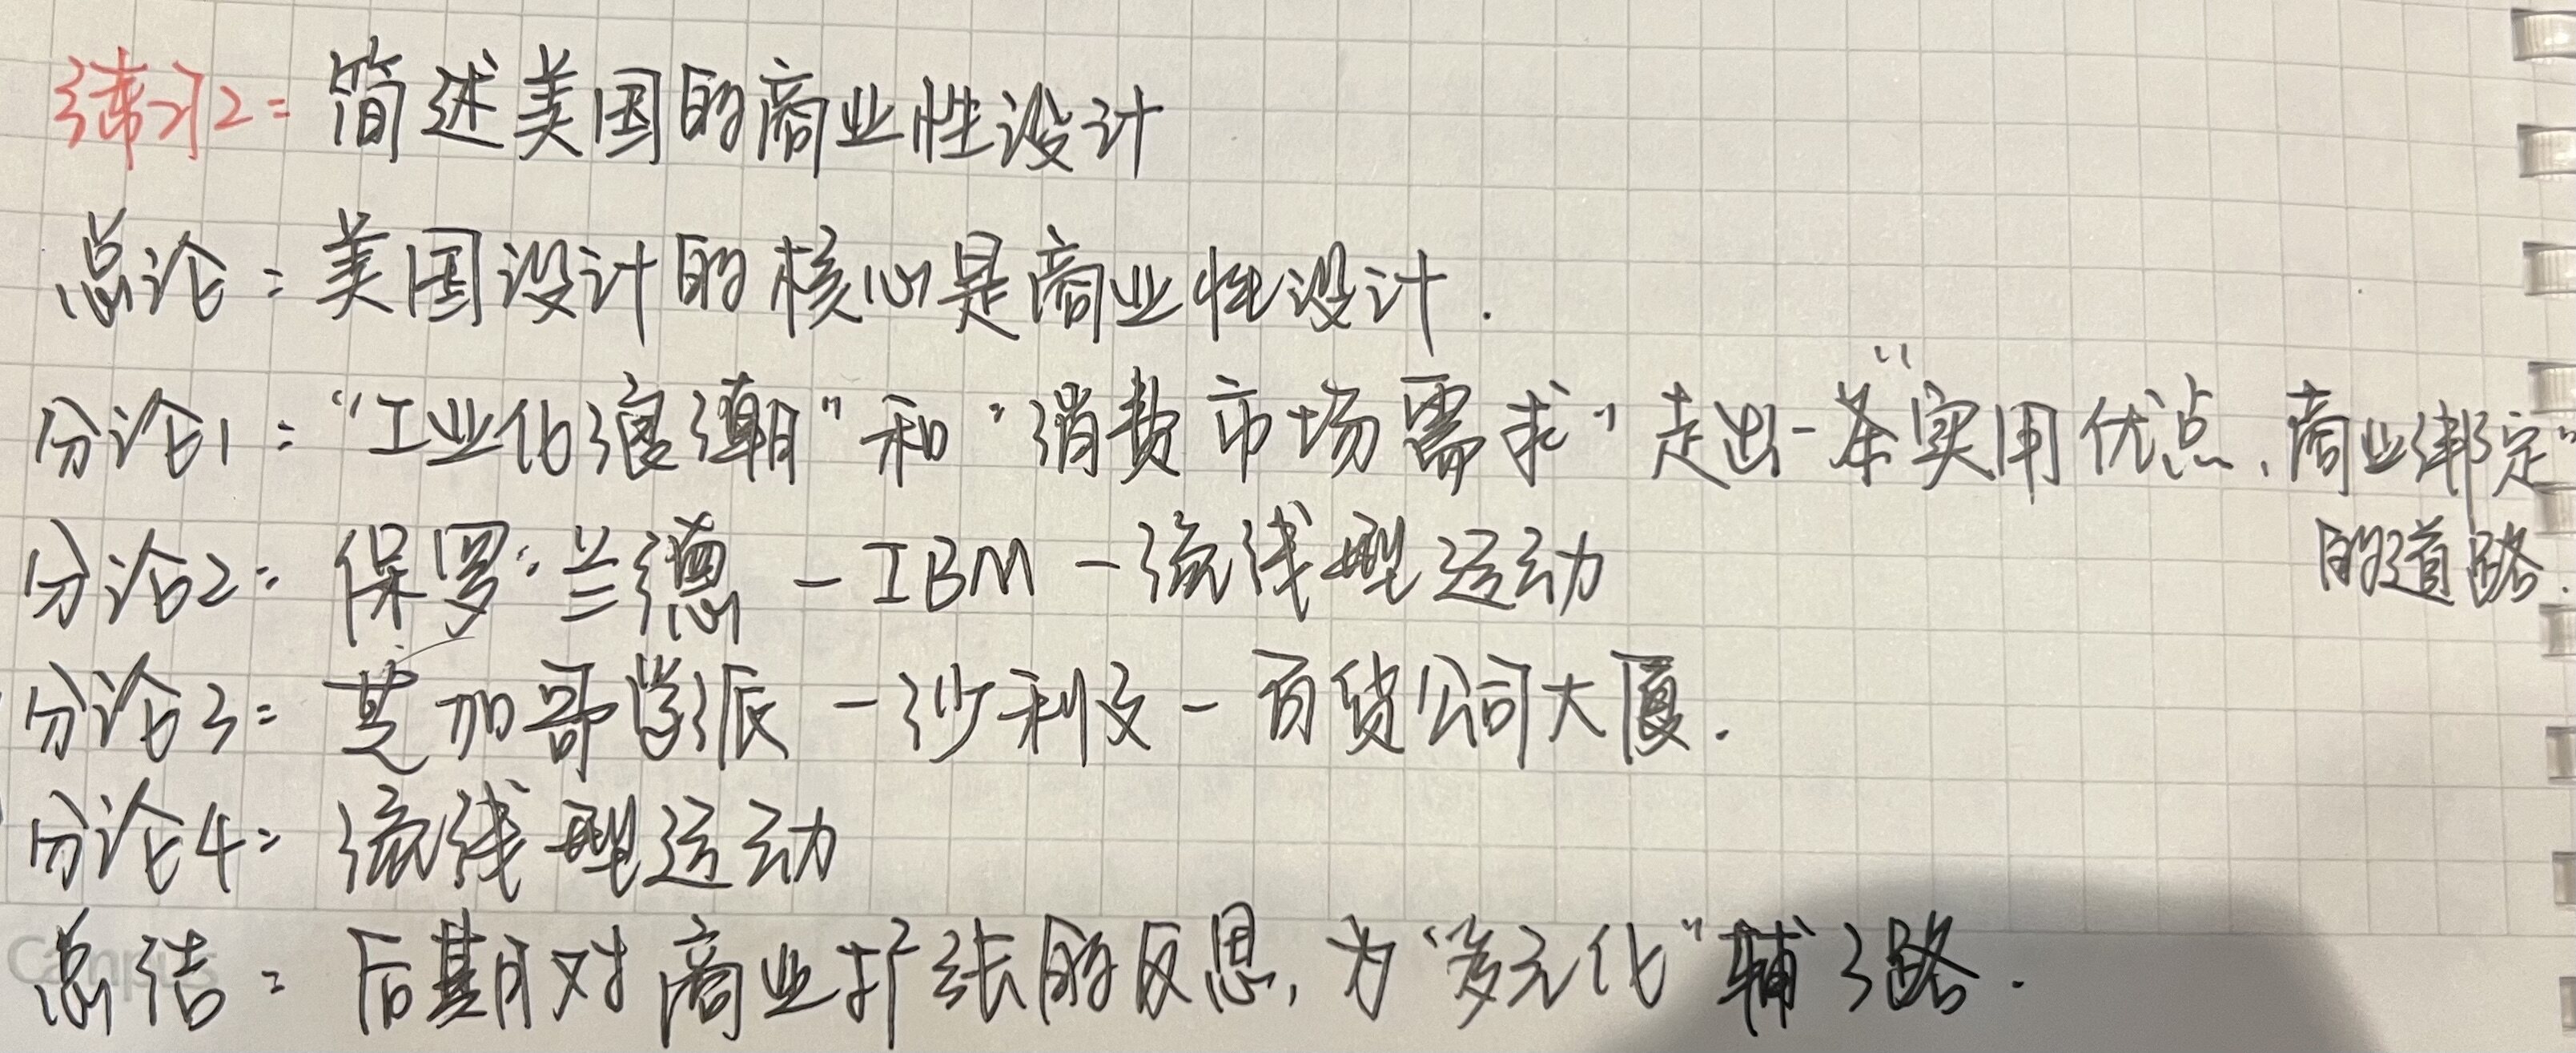 练习2：简述美国的商业性设计
总论：美国设计的核心是商业性设计.
分论1："工业化浪潮"和"消费市场需求"走出一条"实用优点、商业绑定"
的道路.
分论2：保罗·兰德-IBM-流线型运动
分论3：芝加哥学派-沙利文-百货公司大厦.
分论4：流线型运动
总结：后期对商业扩张的反思,为"多元化"辅了路.
Campus